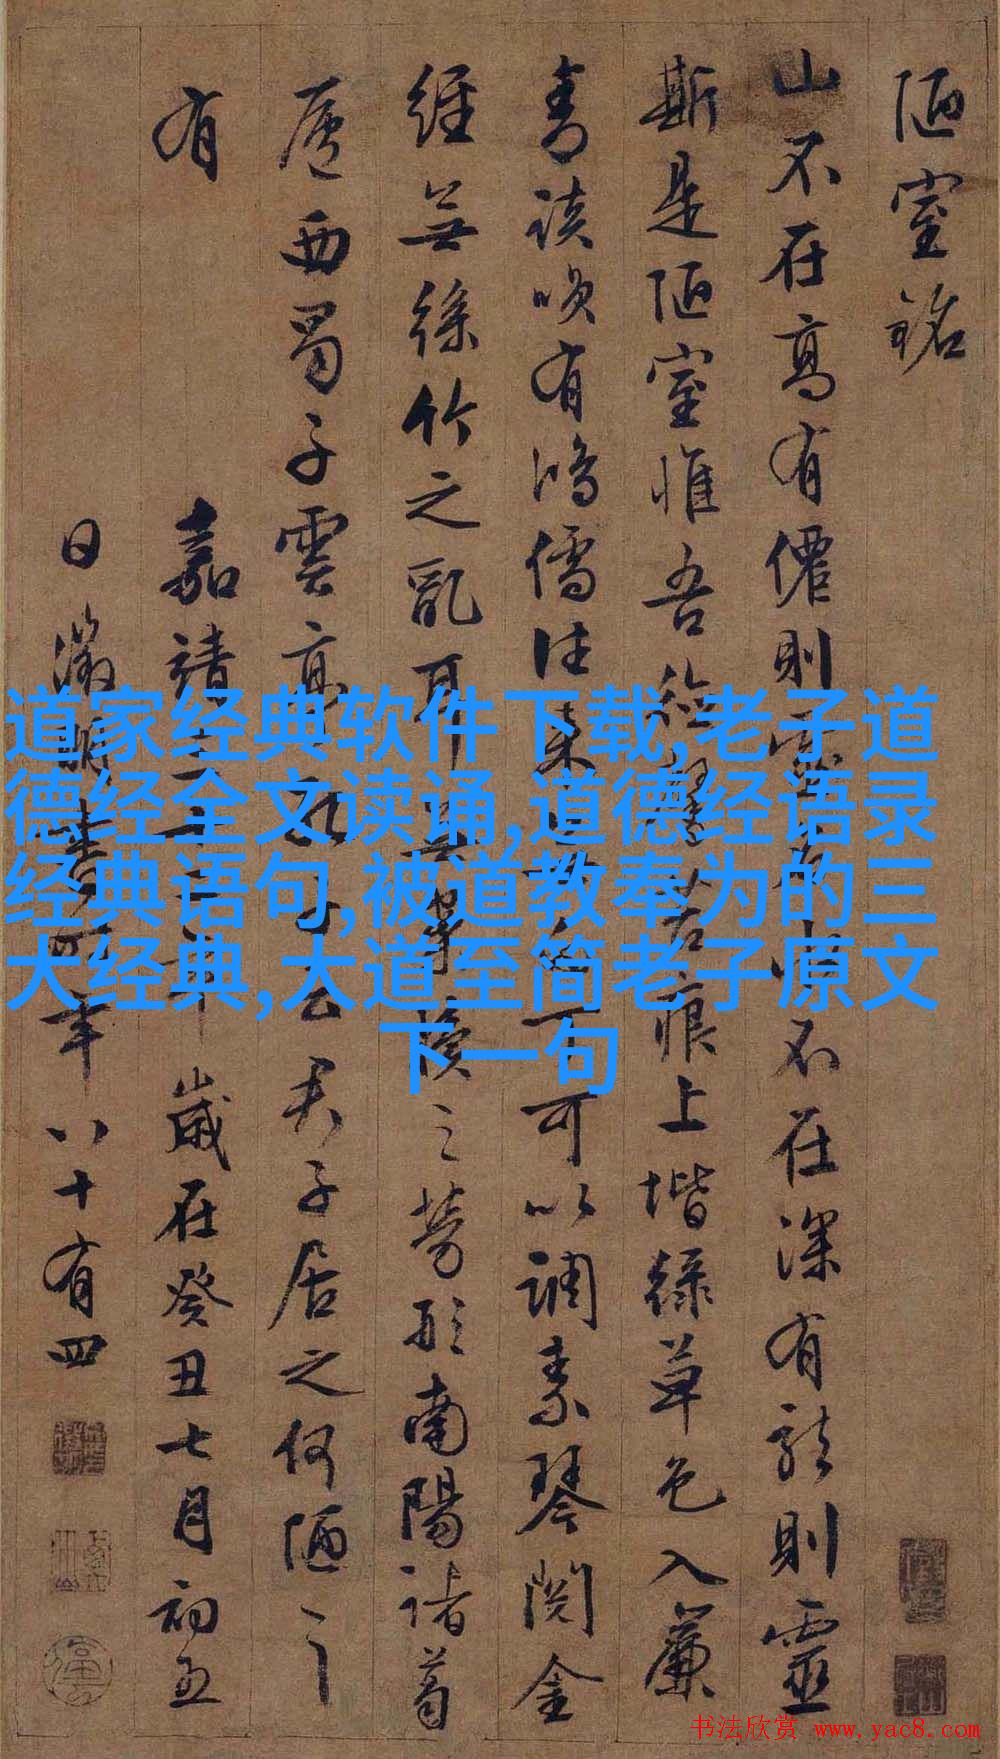 陋室銘
山不在高有僊則靈水不在深有龍則靈
斯是陋室惟吾德馨苔痕上堦綠草色入簾
青談咲有鴻儒往来無白丁可以調素琴閱金
經無絲竹之亂耳無案牘之勞形南陽諸葛
廬西蜀子雲亭孔子云君子居之何陋之
有
嘉靖三十二年歲在癸丑七月初五
日徵明書時年八十有四
道家经典软件下载,老子道
德经全文读诵,道德经语录
经典语句,被道教奉为的三
大经典,大道至简老子原文
下一句
书法欣赏 www.yac8.com